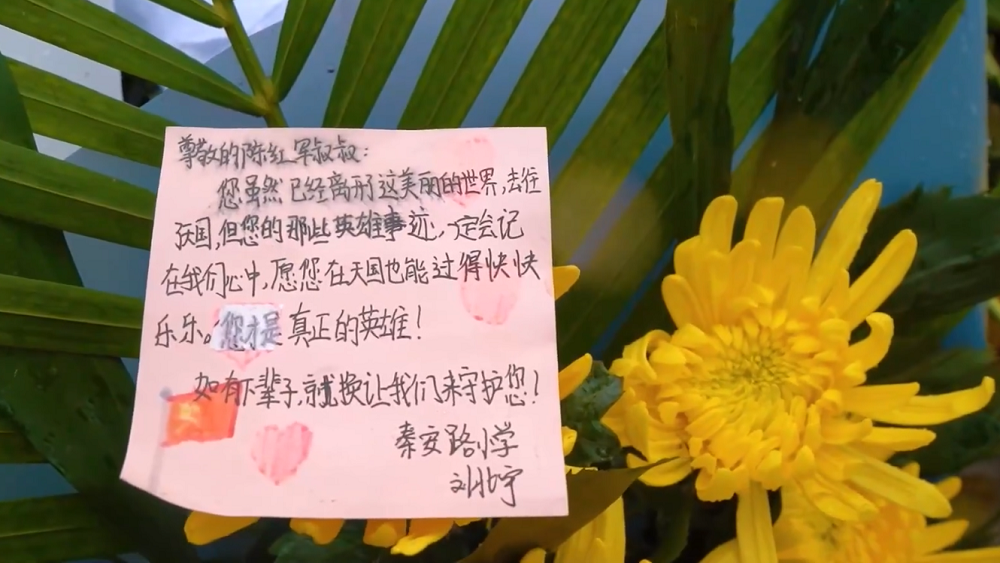 尊敬的陈红军叔叔：
您虽然已经离开这美丽的世界，去往
天国，但您的那些英雄事迹，一定会记
在我们心中，愿您在天国也能过得快快
乐乐。您才是真正的英雄！
如有下辈子，就换让我们来守护您！
秦安路小学
刘北宇